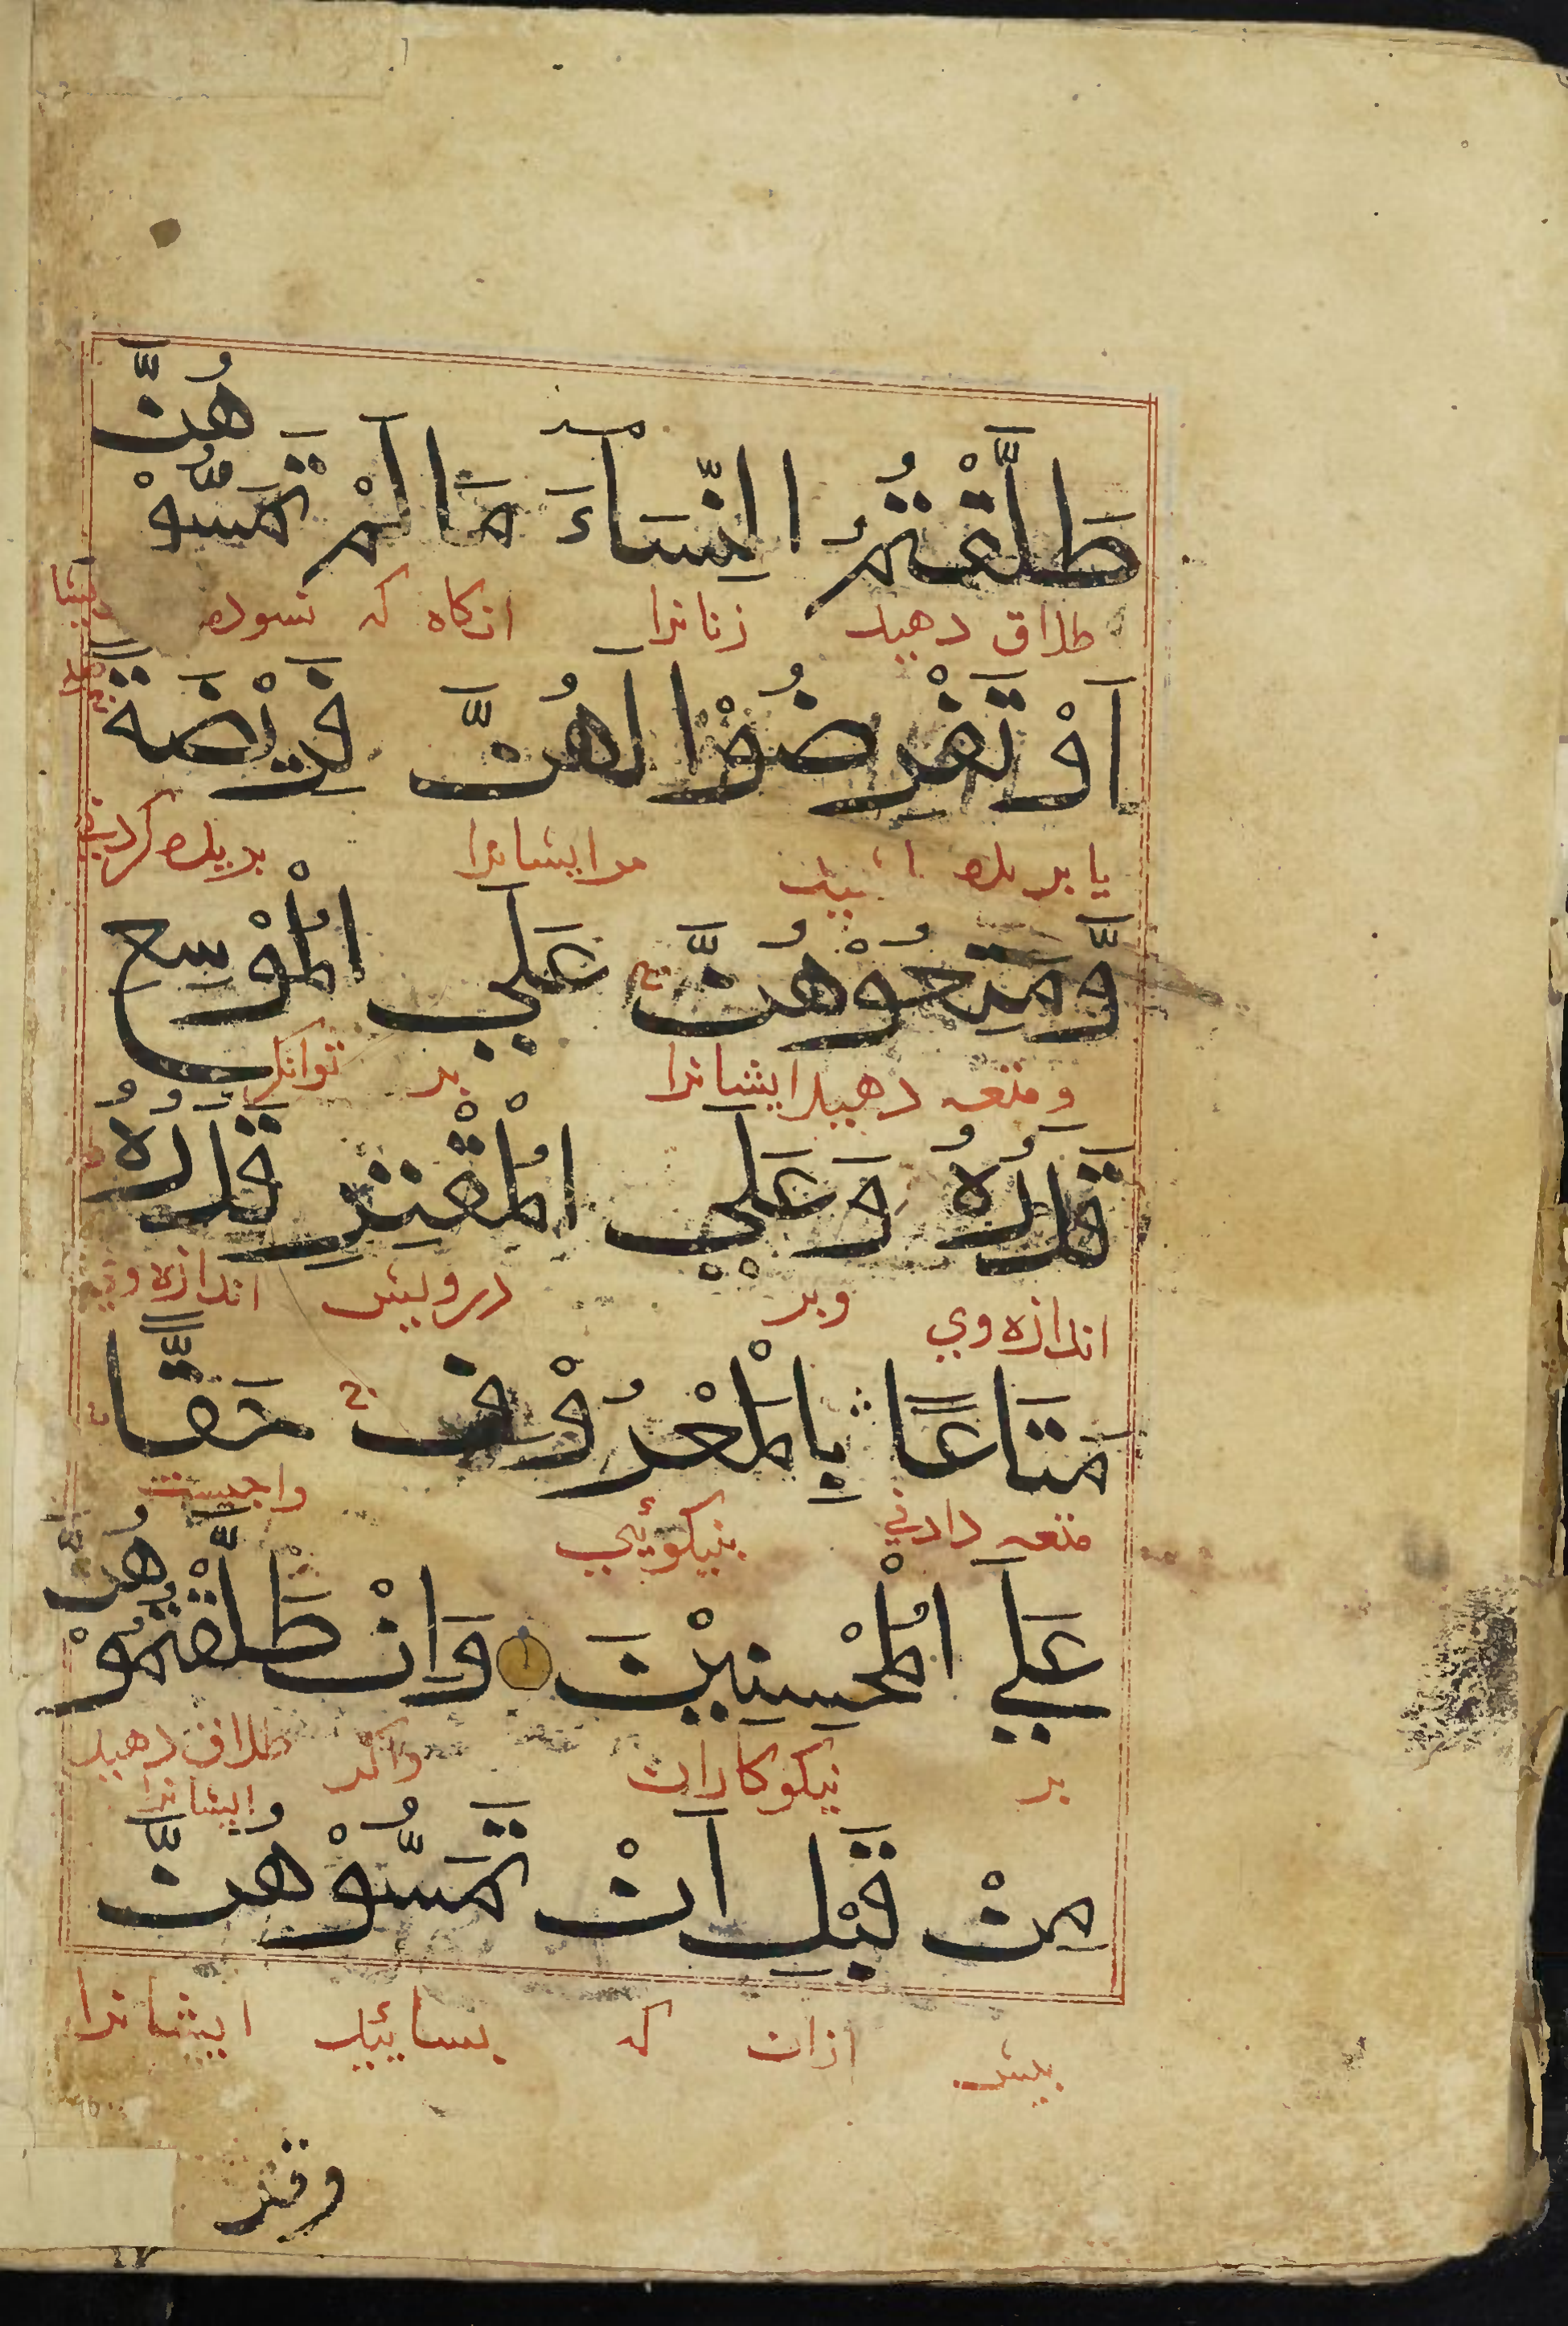 طَلَّقْتُمُ النِّسَآءَ مَا لَمْ تَمَسُّوْهُنَّ
طلاق دهید زنانرا انکاه که نسوده
اَوْ تَفْرِضُوْا لَهُنَّ فَرِيْضَةً
یا بریده مرایشانرا بریده کردنی
وَّمَتِّعُوْهُنَّ عَلَي الْمُوْسِعِ
ومتعه دهید ایشانرا بر توانکر
قَدَرُهُ وَعَلَي الْمُقْتِرِ قَدَرُهُ
اندازه وي وبر درویش اندازه وي
مَتَاعًا بِالْمَعْرُوْفِ حَقًّا
متعه دادني بنیکوئي واجبست
عَلَي الْمُحْسِنِيْنَ وَاِنْ طَلَّقْتُمُوْهُنَّ
بر نیکوکاران واکر طلاق دهید ایشانرا
مِنْ قَبْلِ اَنْ تَمَسُّوْهُنَّ
پیش ازان که بسائید ایشانرا
وقد